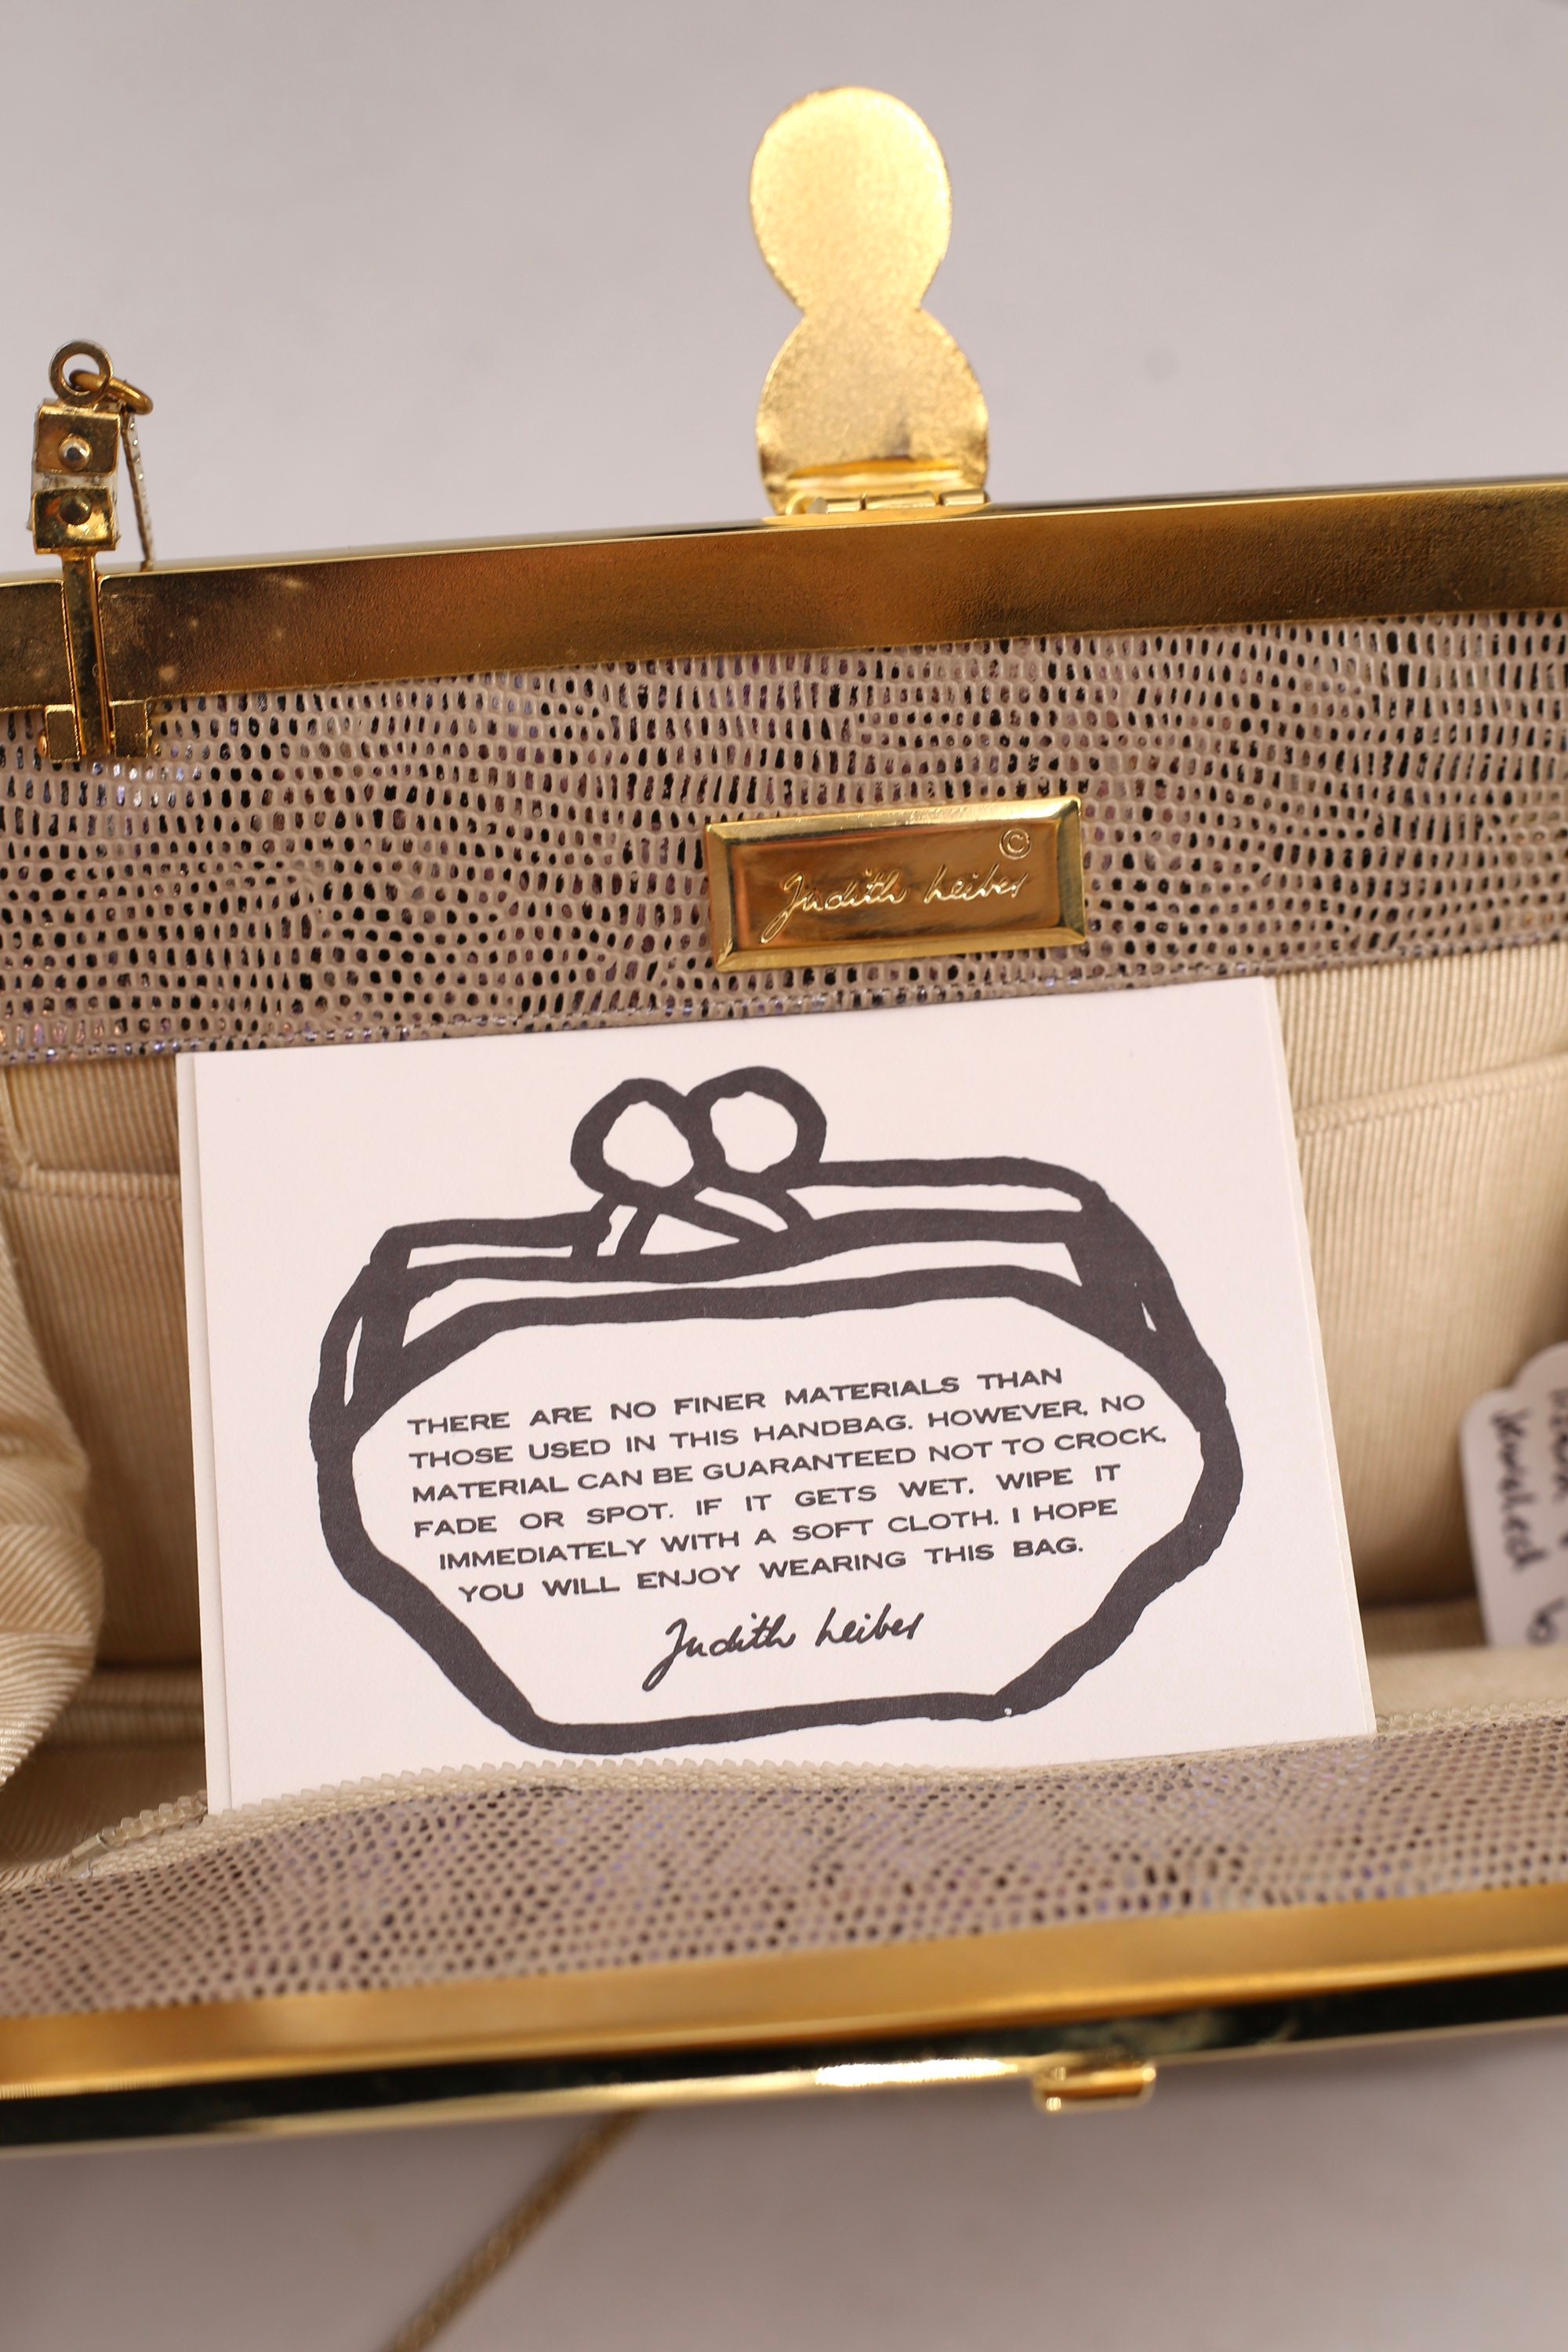 ©
Judith Leiber
THERE ARE NO FINER MATERIALS THAN
THOSE USED IN THIS HANDBAG. HOWEVER, NO
MATERIAL CAN BE GUARANTEED NOT TO CROCK,
FADE OR SPOT. IF IT GETS WET, WIPE IT
IMMEDIATELY WITH A SOFT CLOTH. I HOPE
YOU WILL ENJOY WEARING THIS BAG.
Judith Leiber